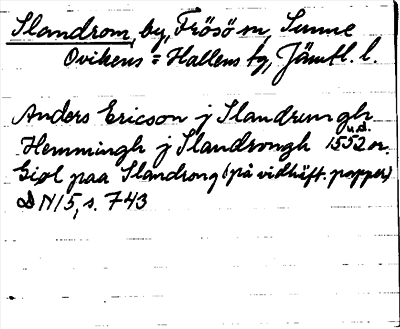 Slandrom, by, Frösö sn, Sunne
Ovikens = Hallens tg, Jämtl. l.
Anders Ericson j Slandrungh
Hemmingh j Slandrongh 1552 or.
u.d.
Giøl paa Slandrong (på vidhäft. papper)
DN 15, s. 743